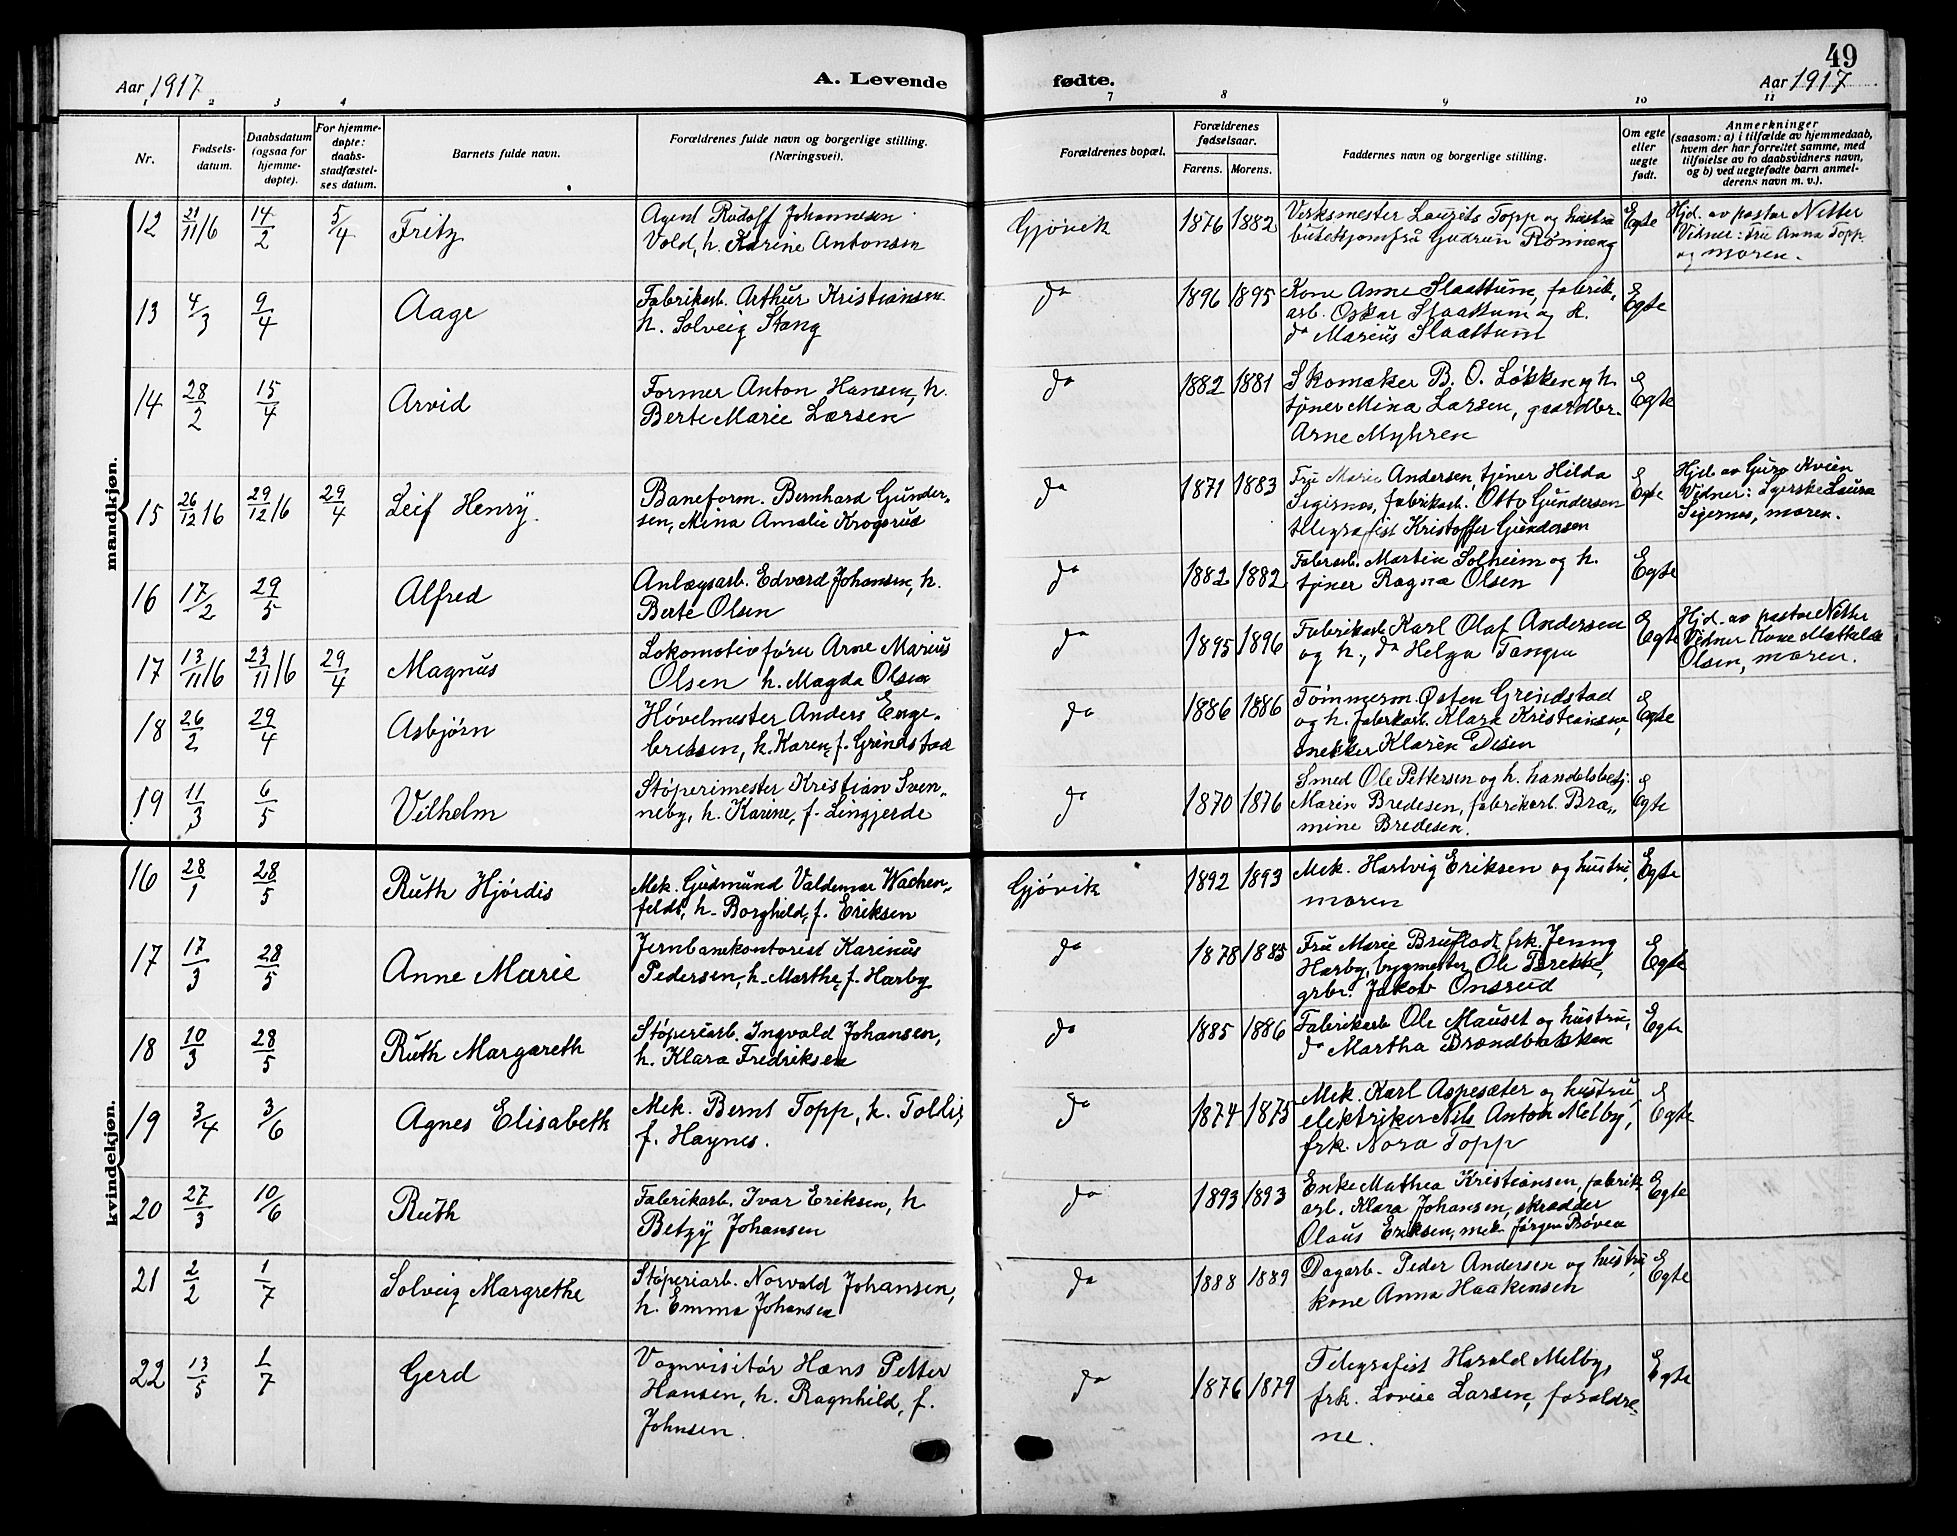 49
Aar 1917
A. Levende fødte.
Aar 1917
1 2 3 4 7 8 9 10 11
Nr.
Fødsels-
datum.
Daabsdatum
(ogsaa for
hjemme-
døpte).
For hjemme-
døpte:
daabs-
stadfæstel-
ses datum.
Barnets fulde navn.
Forældrenes fulde navn og borgerlige stilling.
(Næringsvei).
Forældrenes bopæl.
Forældrenes
fødselsaar.
Farens. Morens.
Faddernes navn og borgerlige stilling.
Om egte
eller
uegte
født.
Anmerkninger
(saasom: a) i tilfælde av hjemmedaab,
hvem der har forrettet samme, med
tilføielse av to daabsvidners navn,
og b) ved uegtefødte barn anmel-
derens navn m. v.).
mandkjøn.
12 21/11 16 14/2 5/4 Fritz
Agent Rudolf Johannesen
Vold, h. Karine Antonsen
Gjövik 1876 1882
Verksmester Laurits Topp og hustru
butikjomfru Gudrun Rönneng
Egte
Hjd. av pastor Netter
Vidner: Fru Anna Topp
og moren.
13 4/3 9/4 Aage
Fabrikarb. Arthur Kristiansen
h. Solveig Stang
do 1896 1895
Kone Anne Slaattum, fabrik.
arb. Oskar Slaattum og h.
do Marius Slaattum
Egte
14 28/2 15/4 Arvid
Former Anton Hansen, h.
Berte Marie Larsen
do 1882 1881
Skomaker B. O. Løkken og h.
tjener Mina Larsen, gaardbr.
Arne Myhren
Egte
15 26/12 16 29/12 16 29/4 Leif Henry.
Baneform. Bernhard Gunder-
sen, Mina Amalie Krogsrud
do 1871 1883
Fru Marie Andersen, tjener Hilda
Sigernes, fabrikarb. Otto Gundersen
telegrafist Kristoffer Gundersen
Egte
Hjd. av Guro Kvien
Vidner: Syerske Laura
Sigernes, moren.
16 17/2 29/5 Alfred
Anlægsarb. Edvard Johansen, h.
Berte Olsen
do 1882 1882
Fabrarb. Martin Solheim og h.
tjener Ragna Olsen
Egte
17 13/11 16 23/11 16 29/4 Magnus
Lokomotivfører Arne Marius
Olsen h. Magda Olsen
do 1895 1896
Fabrikarb. Karl Olaf Andersen
og h., do Helga Tangen
Egte
Hjd. av pastor Netter
Vidner Kone Mathilde
Olsen, moren.
18 26/2 29/4 Asbjørn
Høvelmester Anders Enge-
bretsen, h. Karen, f. Grindstad
do 1886 1886
Tømmerm. Østen Grindstad
og h. fabrkarb. Klara Kristiansen,
snekker Klarin Disen
Egte
19 11/3 6/5 Vilhelm
Støperimester Kristian Sven-
neby, h. Karine, f. Lingjerde
do 1870 1876
Smed Ole Pettersen og h. handelsbetj.
Marin Bredesen, fabrikarb. Bra-
mine Bredesen.
Egte
kvindekjøn.
16 28/1 28/5 Ruth Hjördis
Mek. Gudmund Valdemar Wachen-
feldt, h. Borghild, f. Eriksen
Gjövik 1892 1893
Mek. Hartvig Eriksen og hustru,
moren
Egte
17 17/3 28/5 Anne Marie
Jernbanekontorist Karinus
Pedersen, h. Marthe, f. Harby
do 1878 1885
Fru Marie Bruflodt, frk. Jenny
Harby, bygmester Ole Brekke,
grbr. Jakob Onsrud
Egte
18 10/3 28/5 Ruth Margareth
Støperiarb. Ingvald Johansen,
h. Klara Fredriksen
do 1885 1886
Fabrikarb Ole Mauset og hustru,
do Martha Brændbakken
Egte
19 3/4 3/6 Agnes Elisabeth
Mek. Bernt Topp, h.
f. Haynes.
do 1874 1875
Mek. Karl Aspesæter og hustru,
elektriker Nils Anton Melby,
frk. Nora Topp
Egte
20 27/3 10/6 Ruth
Fabrikarb. Ivar Eriksen, h
Betzy Johansen
do 1893 1893
Enke Mathea Kristiansen, fabrik
arb. Klara Johansen, skrædder
Olaus Eriksen, mek. Jørgen
Egte
21 2/2 1/7 Solveig Margrethe
Støperiarb. Norvald Johansen,
h. Emma Johansen
do 1888 1889
Dagarb. Peder Andersen og hustru
kone Anna Haakensen
Egte
22 13/5 1/7 Gerd
Vognvisitør Hans Petter
Hansen, h. Ragnhild, f.
Johnsen.
do 1876 1879
Telegrafist Harald Melby,
frk. Lovise Larsen, forældre-
ne.
Egte